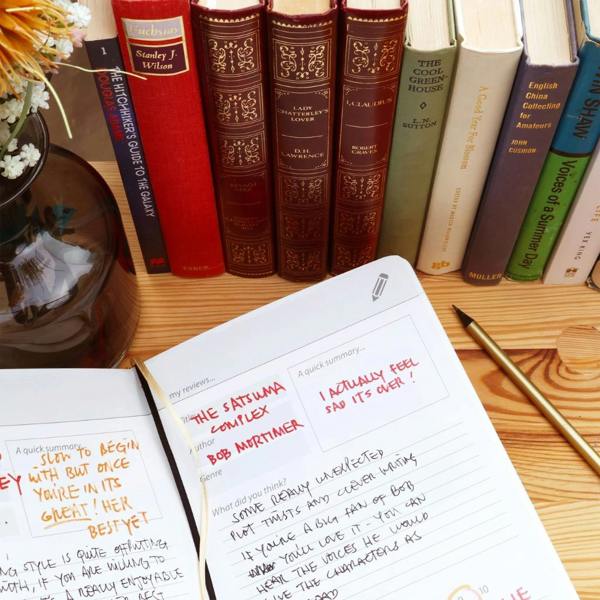 1
THE HITCHHIKER'S GUIDE TO THE GALAXY
DOUGLAS ADAMS
Fuchsias
Stanley J.
Wilson
FABER
LADY
CHATTERLEY'S
LOVER
D.H.
LAWRENCE
I, CLAUDIUS
ROBERT
GRAVES
THE
COOL
GREEN-
HOUSE
L.N.
SUTTON
A Good Year For Blossom
English
China
Collecting
for
Amateurs
JOHN
CUSHION
MULLER
SHAW
Voices of a Summer Day
LIFE
VEX KING
my reviews...
THE SATSUMA
COMPLEX
Author
BOB MORTIMER
Genre
A quick summary...
I ACTUALLY FEEL
SAD IT'S OVER!
What did you think?
SOME REALLY UNEXPECTED
PLOT TWISTS AND CLEVER WRITING
IF YOU'RE A BIG FAN OF BOB
YOU'LL LOVE IT - YOU CAN
HEAR THE VOICES HE WOULD
THE CHARACTERS AS
10
A quick summary
SLOW TO BEGIN
WITH BUT ONCE
YOU'RE IN ITS
GREAT! HER
BEST YET
EY
NG STYLE IS QUITE OFFPUTTING
WITH, IF YOU ARE WILLING TO
A REALLY ENJOYABLE